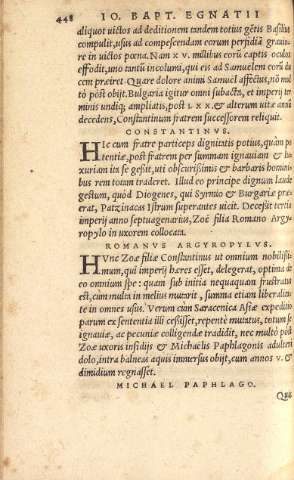 448 IO. BAPT. EGNATII
aliquot victos ad deditionem tandem totius gētis Basilius
compulit, usus ad compescendam eorum perfidiā graviore
in victos pœna. Nam x v. millibus eorū captis oculos
effodit, uno tantū incolumi, qui eis ad Samuelem eorū du
cem præiret. Quare dolore animi Samuel affectus, nō mul
tò pòst obijt. Bulgaria igitur omni subacta, et imperij ter
minis undiq; ampliatis, post L X X. & alterum vitæ annū
decedens, Constantinum fratrem successorem reliquit.
CONSTANTINVS.
HIc cum fratre particeps dignitatis potius, quàm po
tentiæ, post fratrem per summam ignauiam & lu
xuriam ita se gessit, uti obscurissimis & barbaris homini
bus rem totam traderet. Illud eo principe dignum laude
gestum, quòd Diogenes, qui Syrmio & Bulgariæ præ
erat, Patzinacas Istrum superantes uicit. Decessit tertio
imperij anno septuagenarius, Zoë filia Romano Argy
ropylo in uxorem collocata.
ROMANVS ARGYROPYLVS.
HVnc Zoæ filiæ Constantinus ut omnium nobilissi-
mum, qui imperij hæres esset, delegerat, optima de
eo omnium spe: quam sub initia nequaquam frustratus
est, cum nulta in melius mutarit, summa etiam liberalita
te in omnes usus. Verum cùm Saracenica Asiæ expeditio
parum ex sententia illi cessisset, repentè mutatus, totum se
ignauiæ, ac pecuniæ colligendæ tradidit, nec multò pòst
Zoæ uxoris insidijs & Michaëlis Paphlagonis adulteri
dolo, intra balneas aquis immersus obijt, cum annos v. &
dimidium regnasset.
MICHAEL PAPHLAGO.